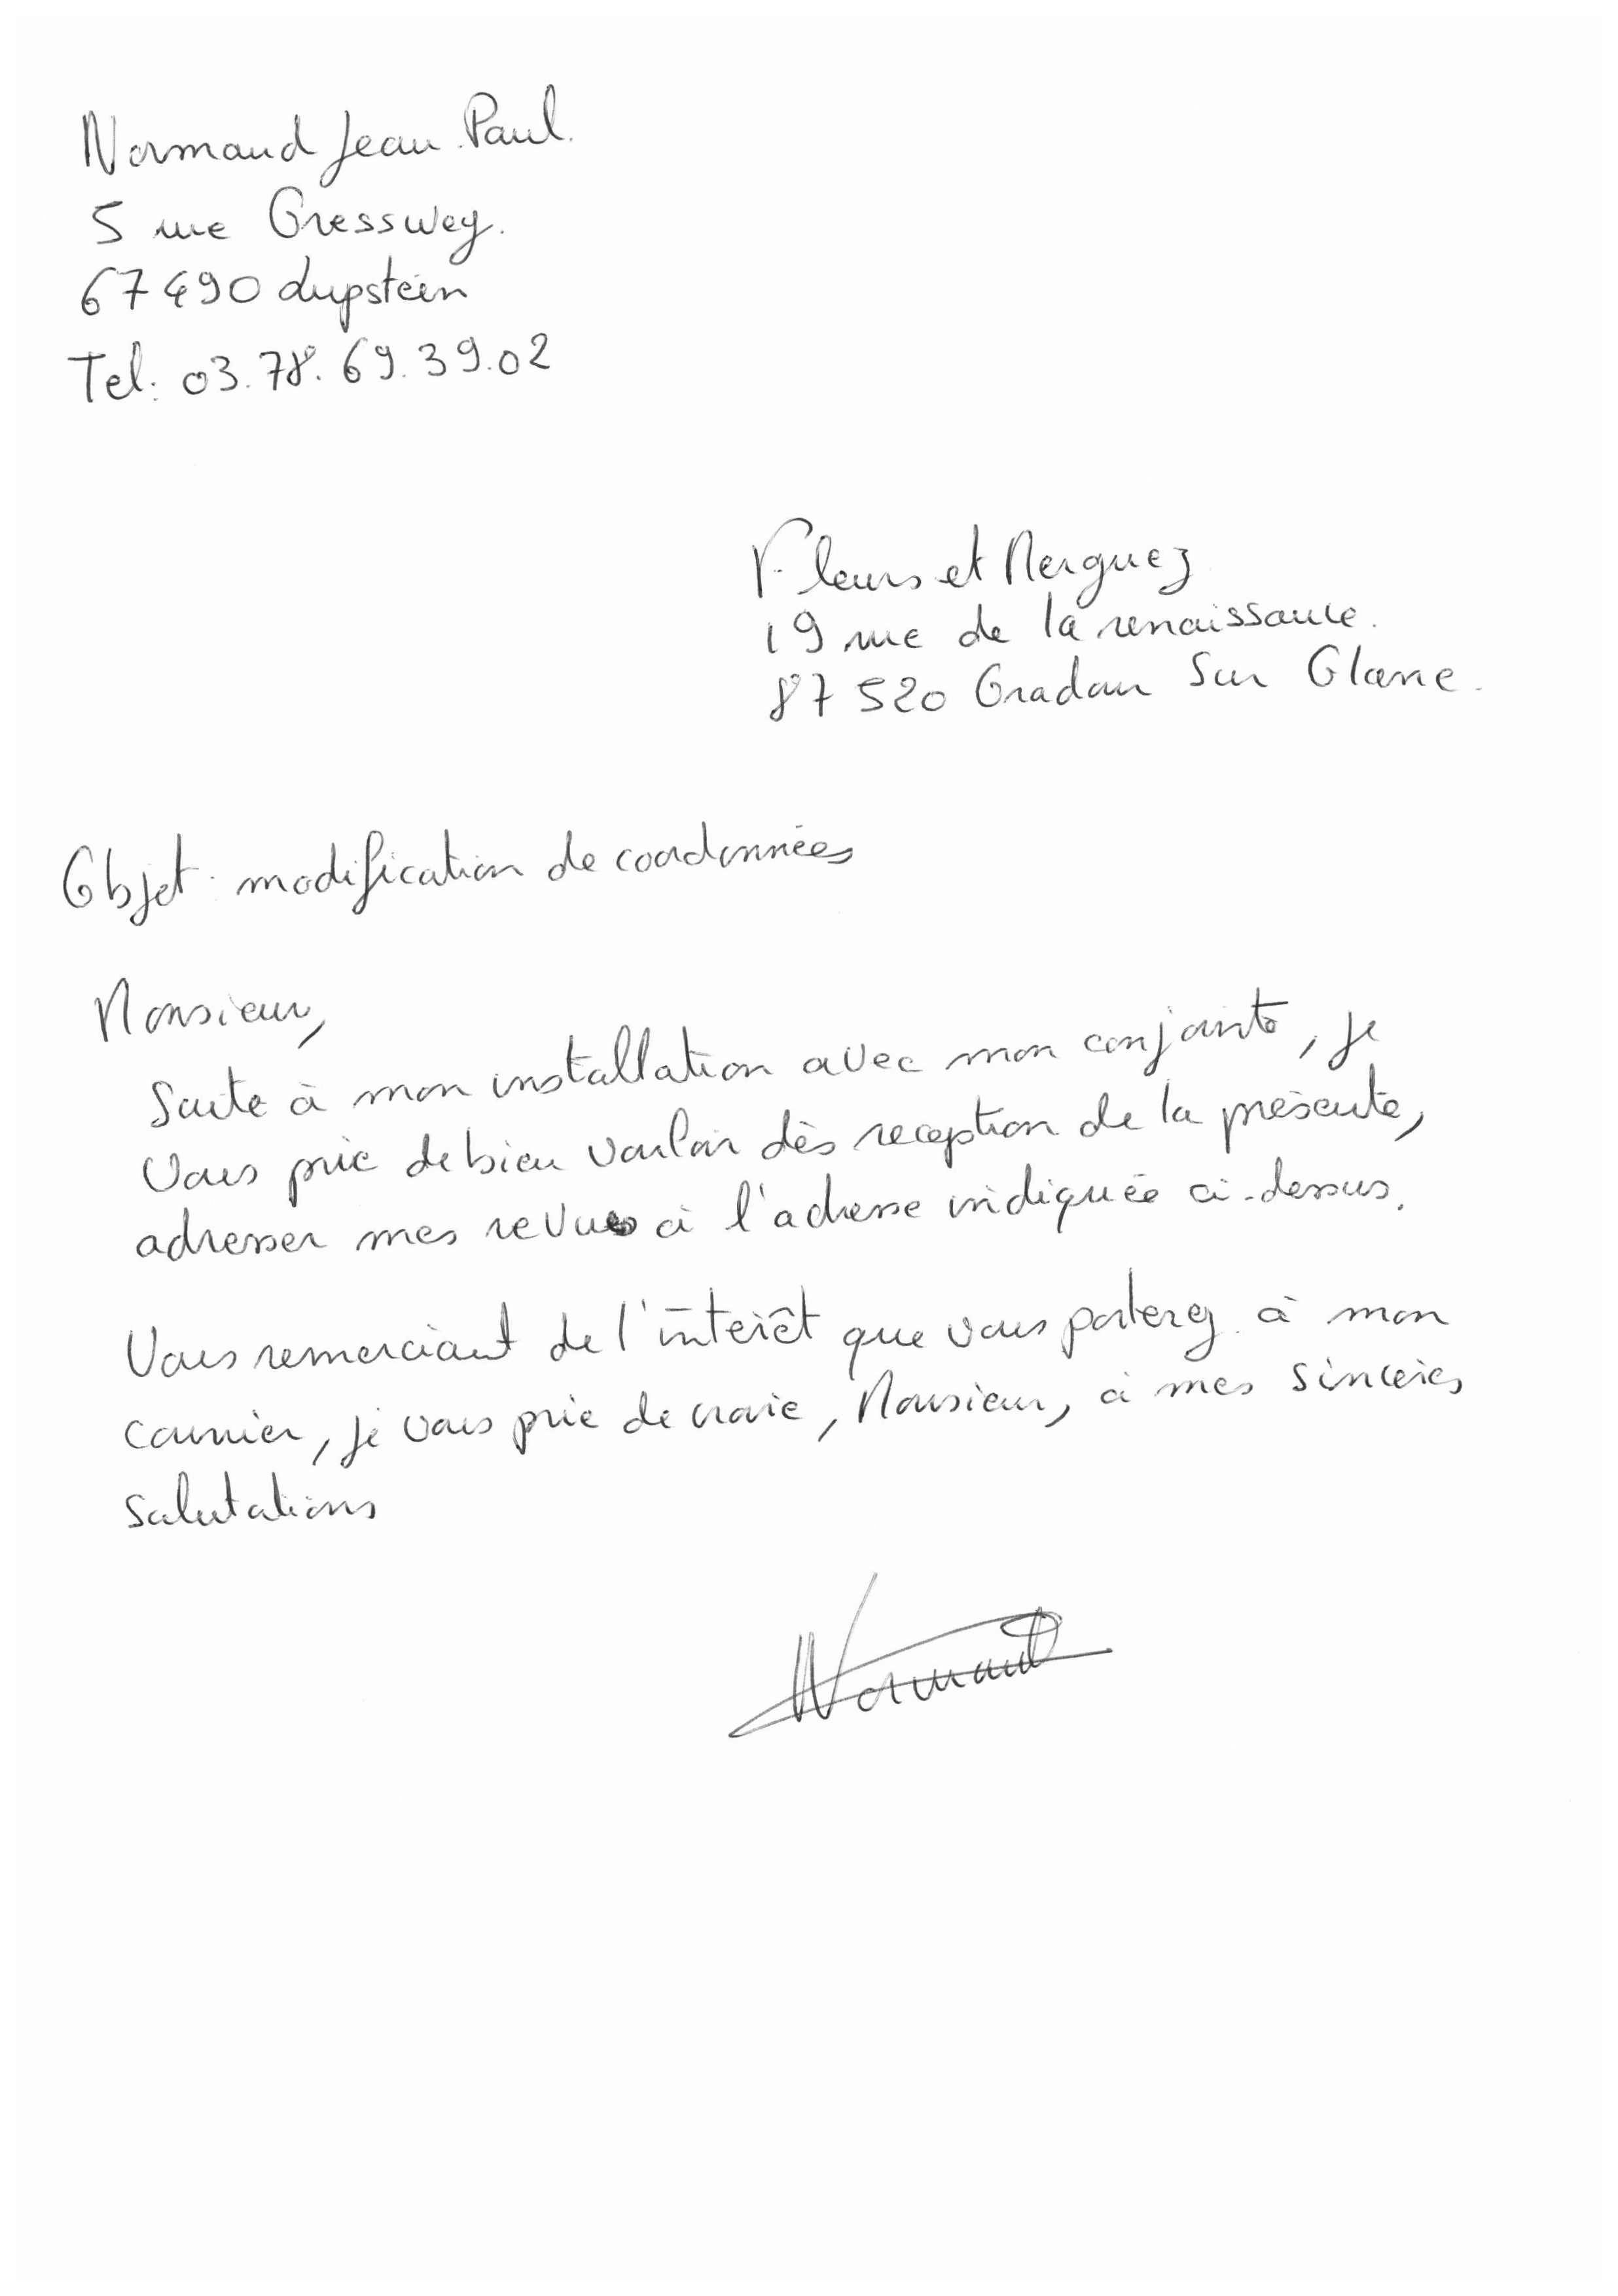 Normand Jean Paul.
5 rue Gressweg.
67490 Lupstein
Tel: 03.78.69.39.02
Fleurs et Merguez
19 rue de la renaissance.
87520 Oradour Sur Glane.
Objet: modification de coordonnées
Monsieur,
Suite à mon installation avec mon conjointe, je
vous prie de bien vouloir dès reception de la présente,
adresser mes revues à l'adresse indiquée ci-dessus.
Vous remerciant de l'intérêt que vous porterez à mon
courrier, je vous prie de croire, Monsieur, à mes sincères
salutations
Normand